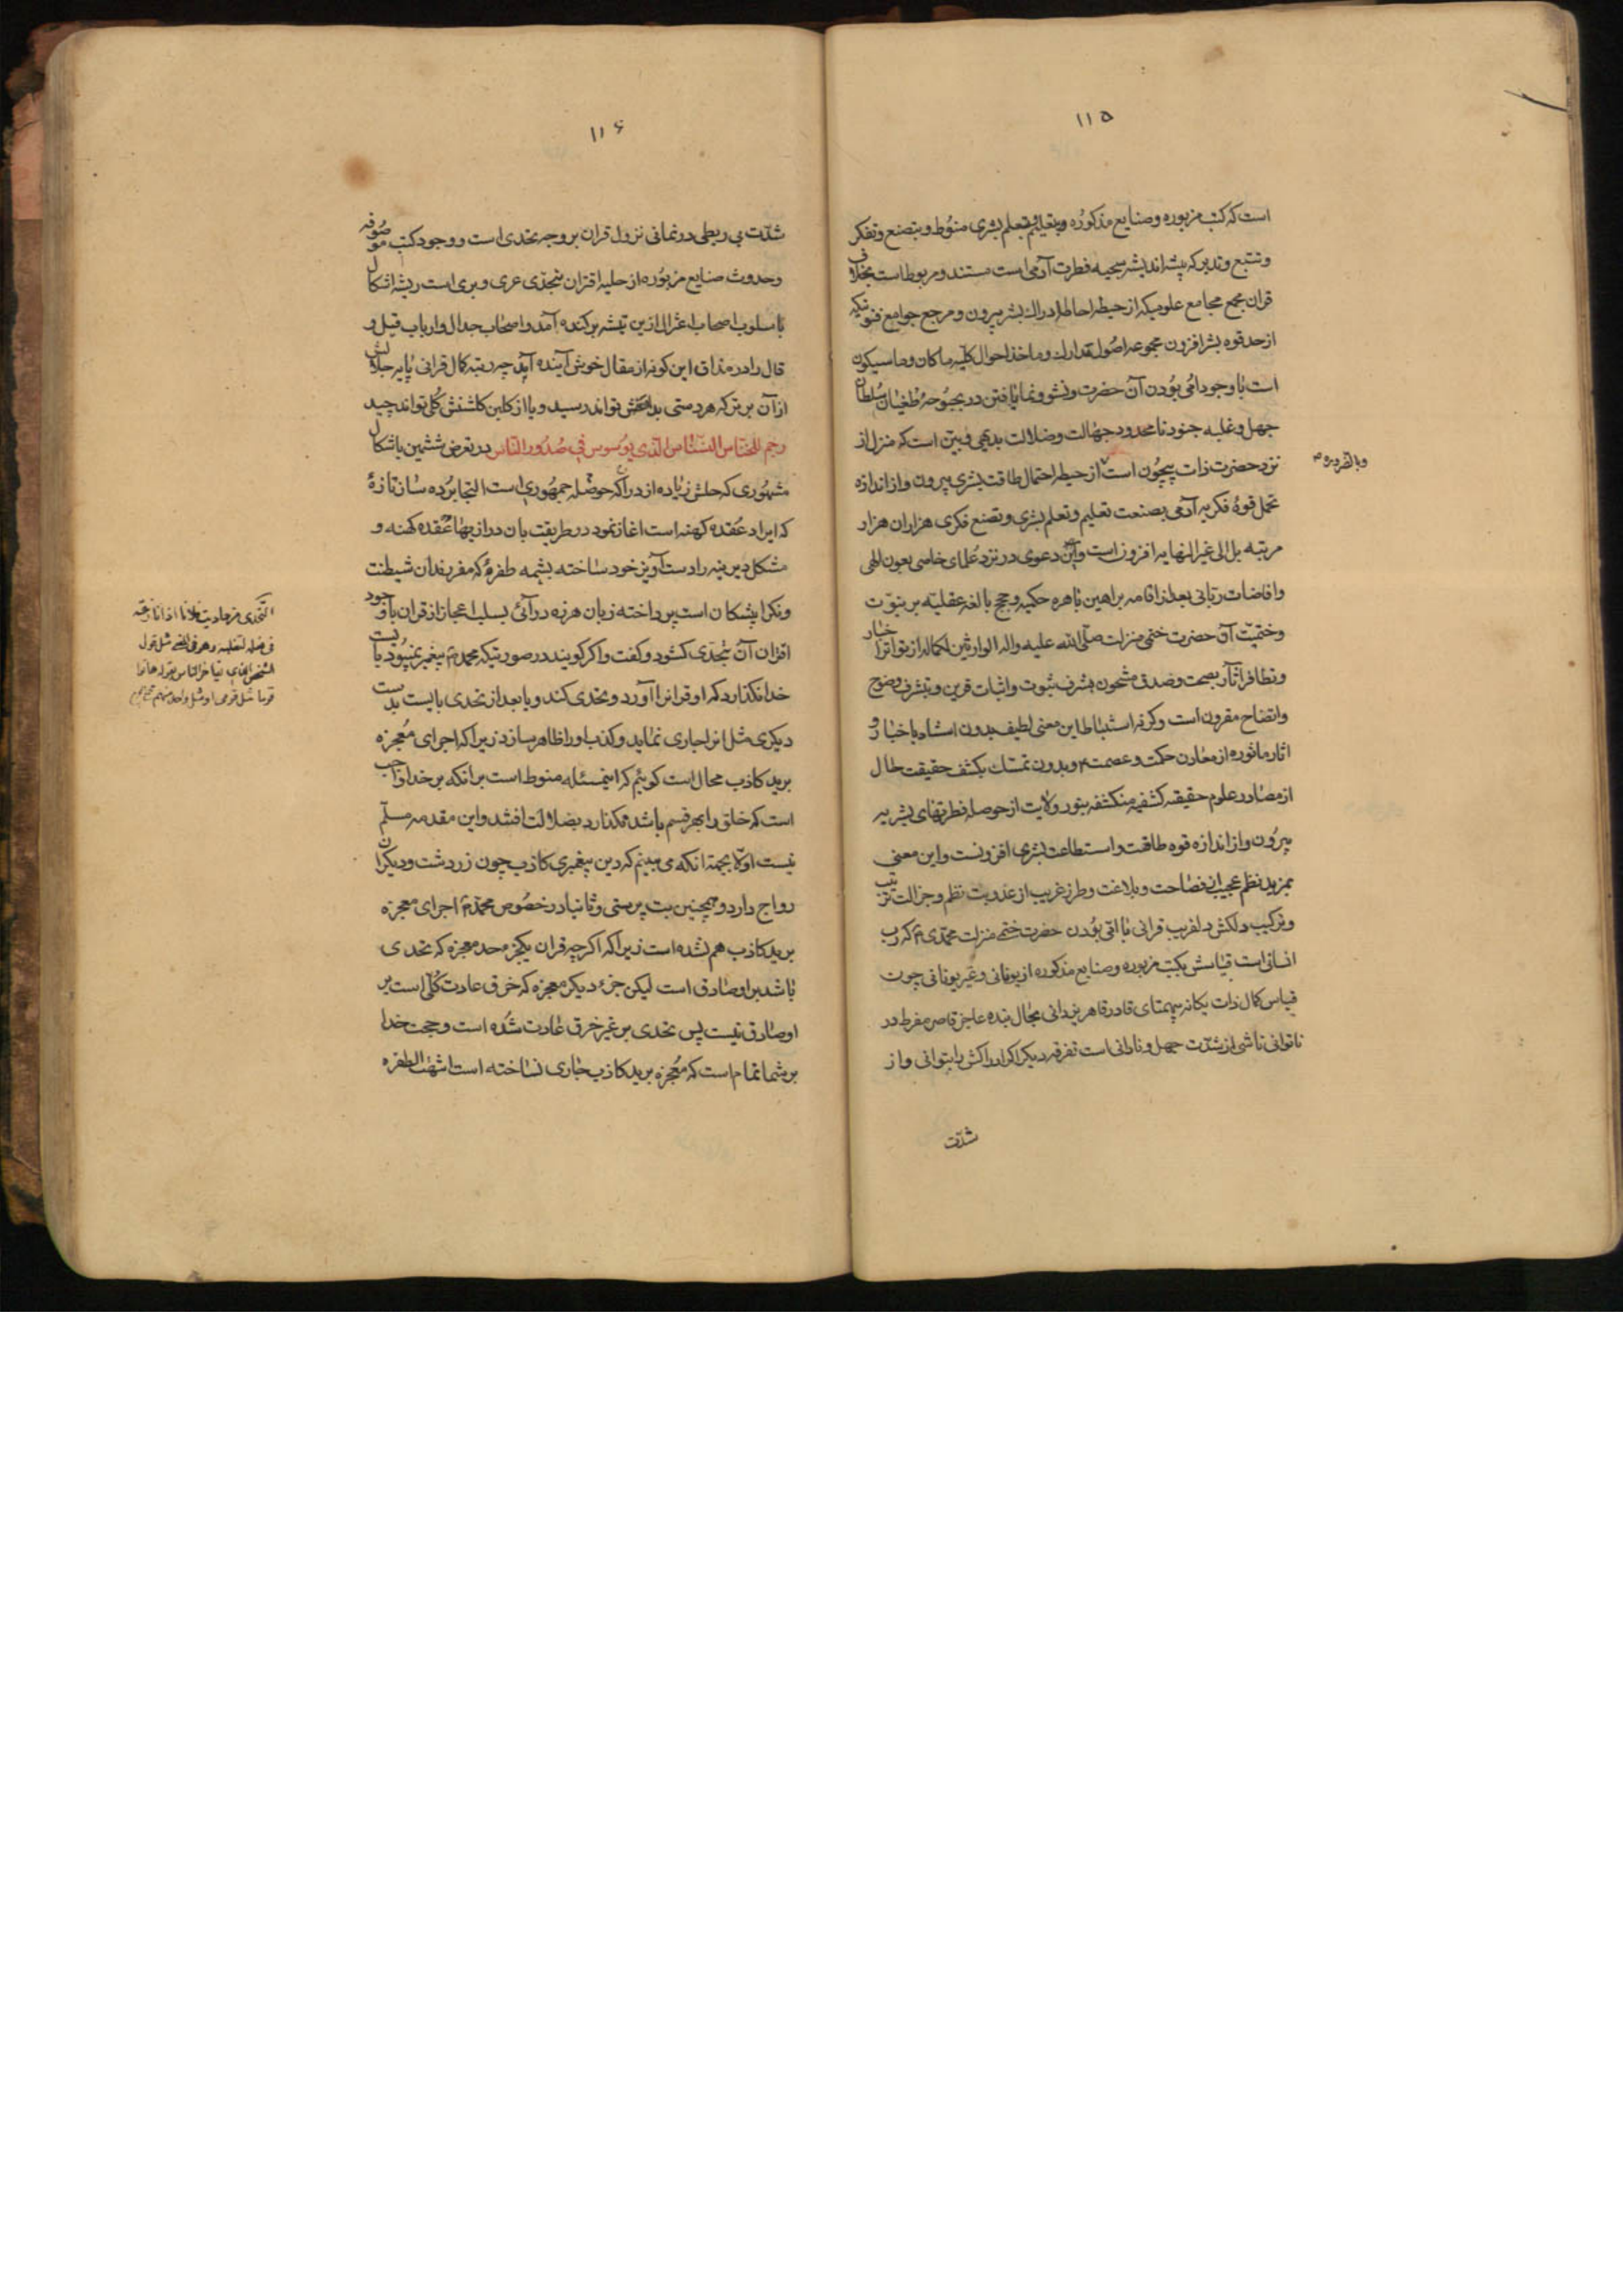 ۱۱۵
است که کتب مزبوره و صنایع مذکوره و بتعلیم و تعلم بشری منوط و بتصنع و تفکر
و تتبع و تدبر که پیشه اندیشه سجیه فطرت آدمی است مستند و مربوط است بخلاف
قران مجمع مجامع علومیکه از حیطه احاطه ادراک بشر بیرون و مرجع جوامع فنونیکه
از حد قوه بشر افزون مجموعه اصول مدارک و ماخذ احوال کلیه ماکان و ماسیکون
است با وجود امی بودن آن حضرت و نشو و نما یافتن در بحبوحه طغیان سلطان
جهل و غلبه جنود نامحدود جهالت و ضلالت بدیهی و بین است که منزل از
نزد حضرت ذات بیچون است از حیطه احتمال طاقت بشری بیرون و از اندازه
وبالضروره
تحمل قوهٔ فکریه آدمی بصنعت تعلیم و تعلم بشری و تصنع فکری هزاران هزار
مرتبه بل الی غیر النهایه افزون است و این دعوی در نزد علمای خاصی بعون الهی
و افاضات ربانی بعد از اقامه براهین باهره حکمیه و حجج بالغه عقلیه بر نبوت
و ختمیت آن حضرت ختمی منزلت صلی الله علیه و اله الوارثین لکماله از تواتر اخبار
و تظافر آثار بصحت و صدق مشحون بشرف ثبوت و اثبات قرین و بتشرف وضوح
و اتضاح مقرون است و کرنه استنباط این معنی لطیف بدون استناد باخبار و
اثار ماثوره از معادن حکمت و عصمت و بدون تمسک بکشف حقیقت حال
از مصادر علوم حقیقه کشفیه منکشفه بنور ولایت از حوصله فطرتهای بشریه
بیرون و از اندازه قوه طاقت و استطاعت بشری افزونست و این معنی
بمزید نظم عجیب از فصاحت و بلاغت و طرز غریب از عذوبت نظم و جزالت ترتیب
و ترکیب دلکش دلفریب قرانی با امی بودن حضرت ختمی منزلت محمدی م که رب
انسانی است قیاسش بکتب مزبوره و صنایع مذکوره از یونانی و غیر یونانی چون
قیاس کمال ذات یکانه بیهمتای قادر قاهر یزدانی بحال بنده عاجز قاصر مفرط در
ناتوانی ناشی از شدت جهل و نادانی است تفرقه دیکر اکر ادراکش را بتوانی و از
شدت
۱۱۶
شدت بی ربطی در نمانی نزول قران بر وجه تحدی است و وجود کتب موصوفه
و حدوث صنایع مزبوره از حلیه اقتران بتحدی عری و بری است ریشه اشکال
با سلوب اصحاب اعتزال ازین تیشه برکنده آمد و اصحاب جدال و ارباب قیل و
قال را در مذاق این کونه از مقال خوش آینده آید چه رتبه کمال قرانی پایه جلالش
از آن برتر که هر دستی بدامنش تواند رسید و یا از کلبن کلشنش کلی تواند چید
رجم للخناس النسناس الذی یوسوس فی صدور الناس در تعرض ششمین باشکال
مشهوری که حلش زیاده از دراکه حوصله جمهوری است التجا برده ساز تازهٔ
که ایراد عقده کهنه است اغاز نمود در طریقت بان درازیها عقده کهنه و
مشکل دیرینه را دست آویز خود ساخته بشمه طفرهٔ که مفر بفدان شیطنت
و نکرا پیشکان است پرداخته زبان هرزه درآئی بسلب اعجاز از قران با وجود
اقتران آن بتحدی کشود و کفت و اکر کویند در صورتیکه محمد م پیغمبر نمیبود بایست
خدا نکذارد که او قرانرا آورد و تحدی کند و یا بعد از تحدی بایست بدست
دیکری مثل انرا جاری نماید و کذب او را ظاهر سازد زیرا که اجرای معجزه
برید کاذب محال است کوئیم که اینمسئله منوط است برانکه بر خدا واجب
است که خلق را بهر قسم باشد نکذارد بضلالت افتند و این مقدمه مسلم
نیست اولا بجهة انکه می بینیم که دین پیغمبری کاذب چون زردشت و دیکران
رواج دارد و همچنین بت پرستی و ثانیا در خصوص محمد م اجرای معجزه
برید کاذب هم نشده است زیرا که اکرچه قران یکجزء حد معجزه که تحدی
باشد بر او صادق است لیکن جزء دیکر معجزه که خرق عادت کلی است بر
او صادق نیست پس تحدی بر غیر خرق عادت شده است و حجت خدا
بر شما تمام است که معجزه برید کاذب جاری نساخته است انتهت الطفره
التحدی من حادیت فلانا اذا نازعته
فی فعله لتغلبه و هو فی اللغه مثل قول
الشخص الذی یتفاخر الناس بقوله هاتوا
قوما مثل قومی او مثل واحد منهم